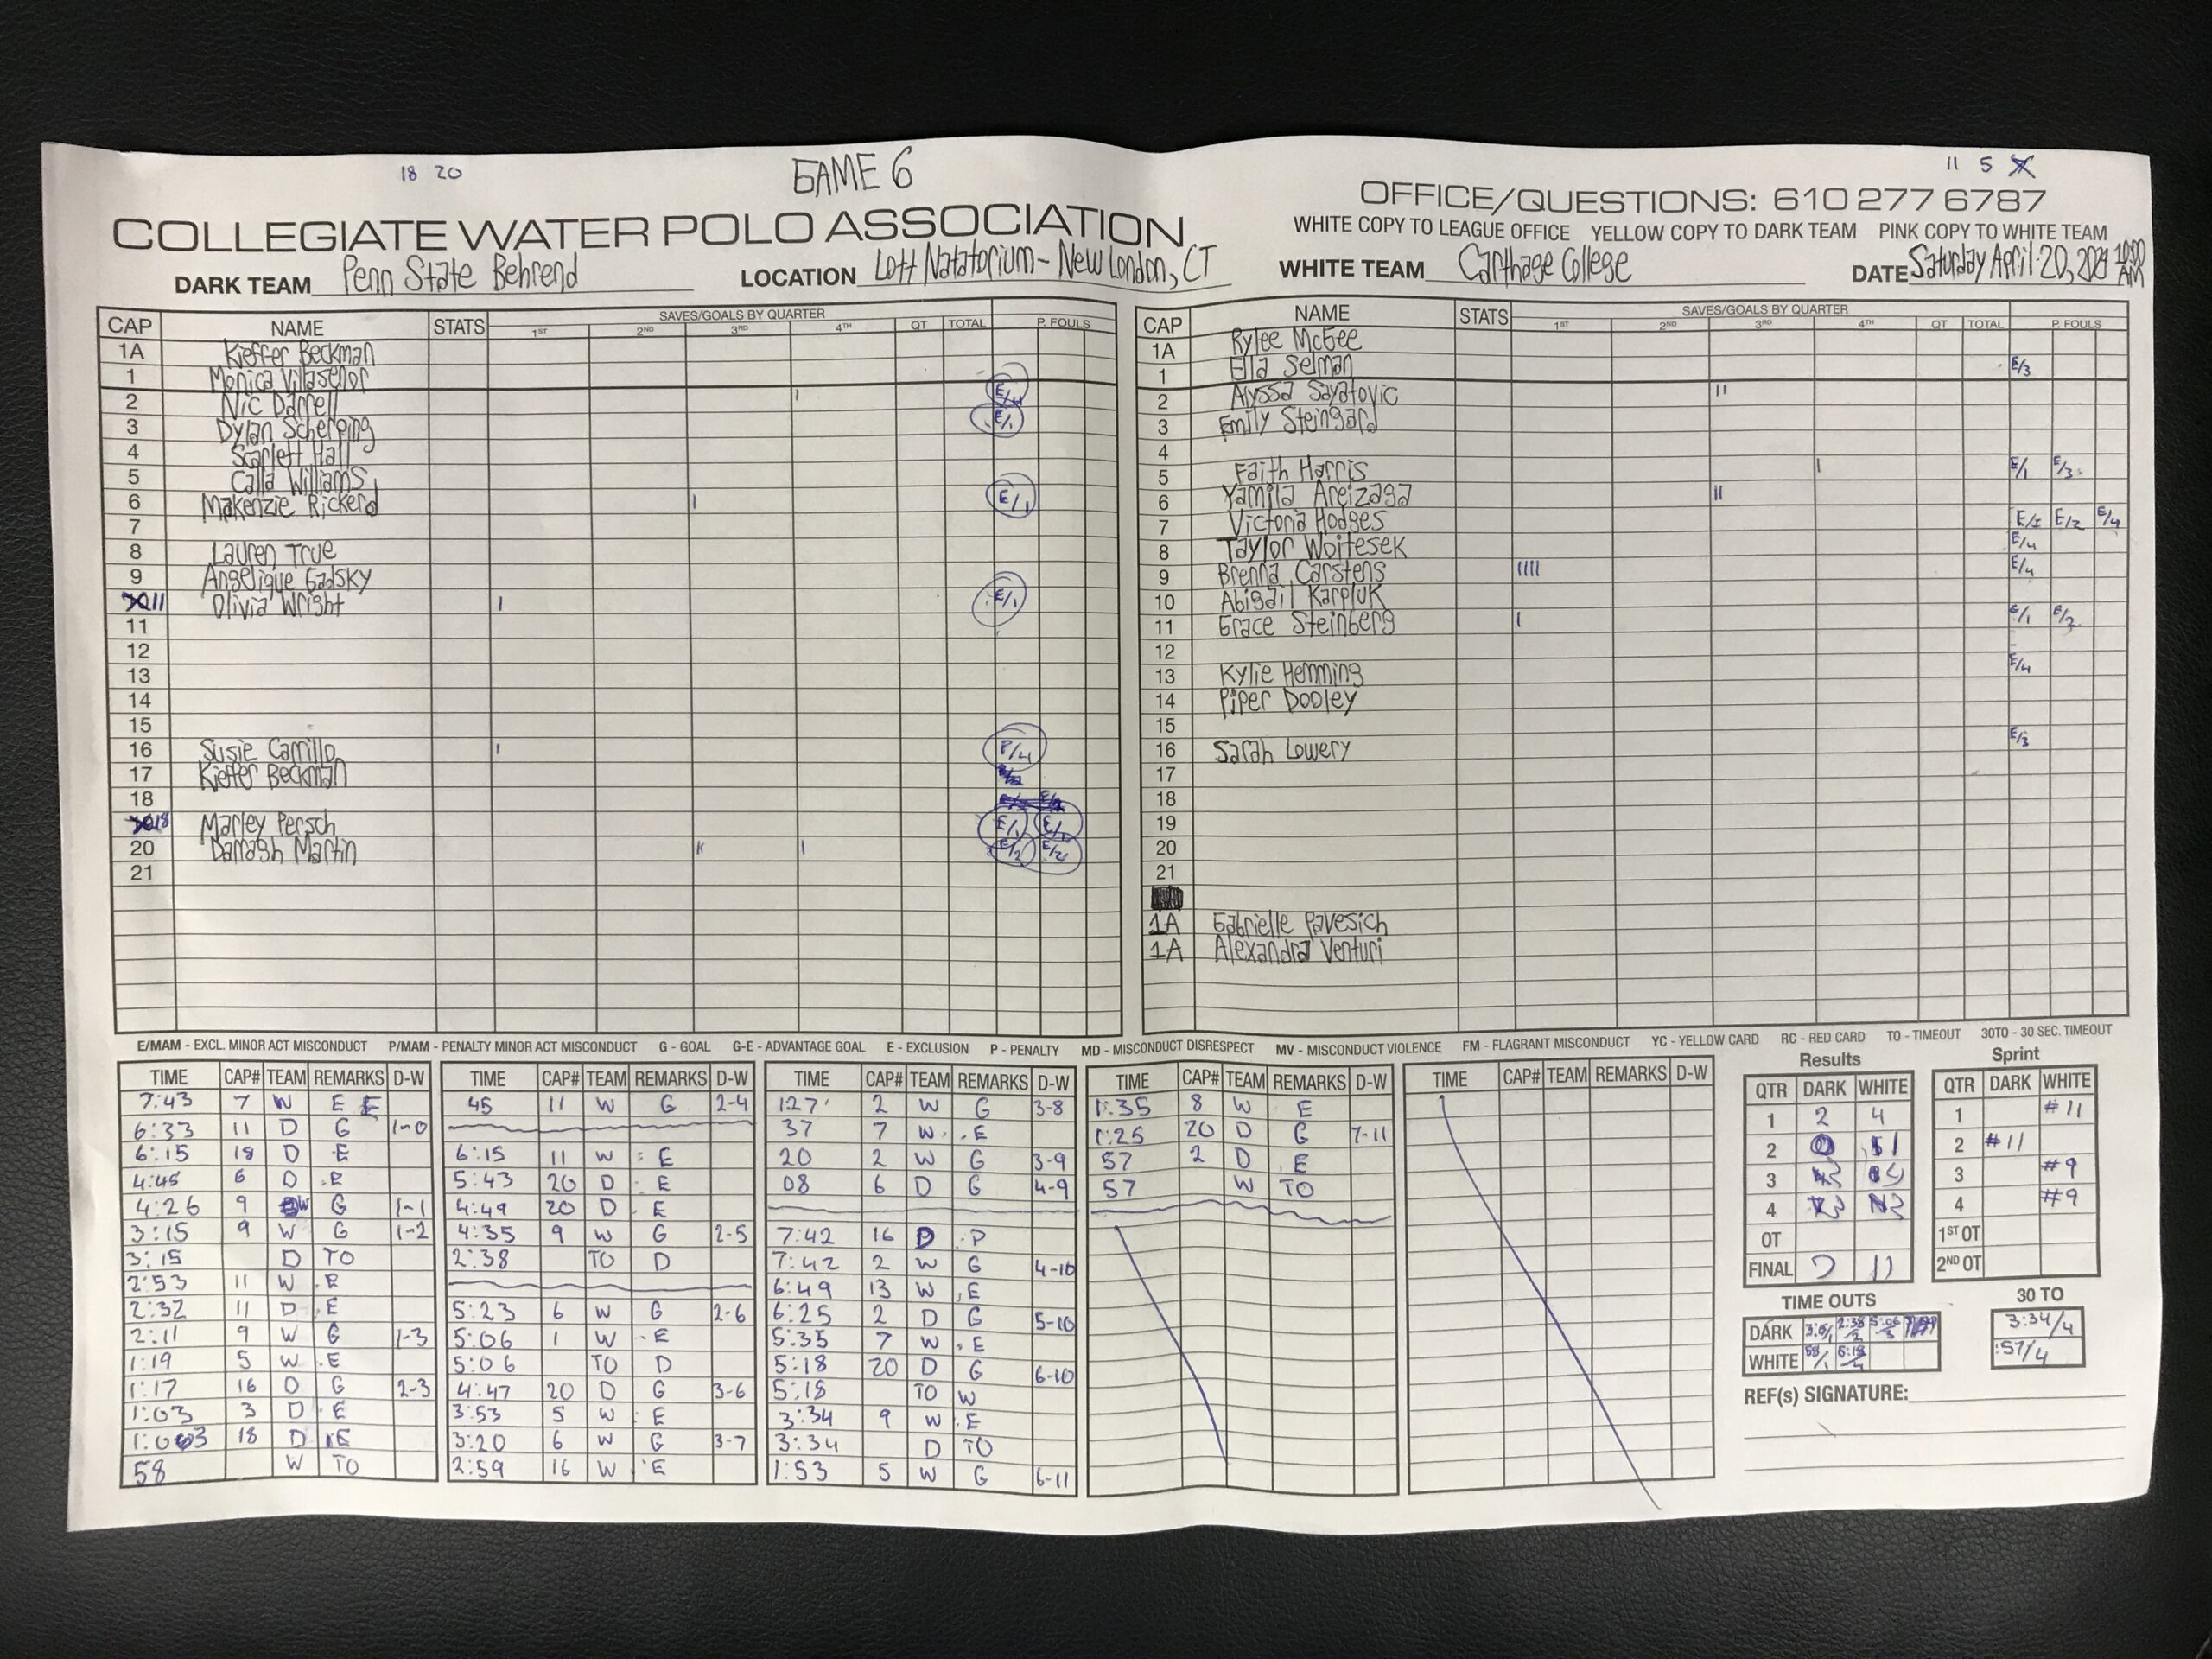 18 20
GAME 6
11 5
COLLEGIATE WATER POLO ASSOCIATION
OFFICE/QUESTIONS: 610 277 6787
WHITE COPY TO LEAGUE OFFICE YELLOW COPY TO DARK TEAM PINK COPY TO WHITE TEAM
DARK TEAM Penn State Behrend LOCATION Lott Natatorium - New London, CT WHITE TEAM Carthage College DATE Saturday April 20, 2024 10:00 AM
CAP NAME STATS SAVES/GOALS BY QUARTER 1ST 2ND 3RD 4TH OT TOTAL P. FOULS
1A Kieffer Beckman
1 Monica Villaseñor
2 Nic Darrell I E/4
3 Dylan Scherping E/1
4 Scarlett Hall
5 Calla Williams
6 Makenzie Rickerd I E/1
7
8 Lauren True
9 Angelique Gadsky
11 Olivia Wright I E/1
11
12
13
14
15
16 Susie Carrillo I P/4
17 Kieffer Beckman
18
18 Marley Persch E/1 E/1
20 Darragh Martin I I E/2 E/2
21
CAP NAME STATS SAVES/GOALS BY QUARTER 1ST 2ND 3RD 4TH OT TOTAL P. FOULS
1A Rylee McGee
1 Ella Selman E/3
2 Alyssa Sayatovic II
3 Emily Steingard
4
5 Faith Harris I E/1 E/3
6 Yamila Areizaga II
7 Victoria Hodges E/1 E/2 E/4
8 Taylor Woitesek E/4
9 Brenna Carstens IIII E/4
10 Abigail Karpluk
11 Grace Steinberg I E/1 E/2
12
13 Kylie Hemming E/4
14 Piper Dooley
15
16 Sarah Lowery E/3
17
18
19
20
21
1A Gabrielle Pavesich
1A Alexandra Venturi
E/MAM - EXCL. MINOR ACT MISCONDUCT P/MAM - PENALTY MINOR ACT MISCONDUCT G - GOAL G-E - ADVANTAGE GOAL E - EXCLUSION P - PENALTY MD - MISCONDUCT DISRESPECT MV - MISCONDUCT VIOLENCE FM - FLAGRANT MISCONDUCT YC - YELLOW CARD RC - RED CARD TO - TIMEOUT 30TO - 30 SEC. TIMEOUT
TIME CAP# TEAM REMARKS D-W
7:43 7 W E E
6:33 11 D G 1-0
6:15 18 D E
4:45 6 D E
4:26 9 W G 1-1
3:15 9 W G 1-2
3:15 D TO
2:53 11 W E
2:32 11 D E
2:11 9 W G 1-3
1:19 5 W E
1:17 16 D G 2-3
1:03 3 D E
1:03 18 D E
58 W TO
TIME CAP# TEAM REMARKS D-W
45 11 W G 2-4
6:15 11 W E
5:43 20 D E
4:49 20 D E
4:35 9 W G 2-5
2:38 TO D
5:23 6 W G 2-6
5:06 1 W E
5:06 TO D
4:47 20 D G 3-6
3:53 5 W E
3:20 6 W G 3-7
2:59 16 W E
TIME CAP# TEAM REMARKS D-W
1:27 2 W G 3-8
37 7 W E
20 2 W G 3-9
08 6 D G 4-9
7:42 16 D P
7:42 2 W G 4-10
6:49 13 W E
6:25 2 D G 5-10
5:35 7 W E
5:18 20 D G 6-10
5:18 TO W
3:34 9 W E
3:34 D TO
1:53 5 W G 6-11
TIME CAP# TEAM REMARKS D-W
1:35 8 W E
1:25 20 D G 7-11
57 2 D E
57 W TO
TIME CAP# TEAM REMARKS D-W
Results
QTR DARK WHITE
1 2 4
2 0 1
3
4 3 2
OT
FINAL 7 11
Sprint
QTR DARK WHITE
1 #11
2 #11
3 #9
4 #9
1ST OT
2ND OT
TIME OUTS
DARK 2:38/2 5:06/3
WHITE 58/1 5:18/4
30 TO
3:34/4
:57/4
REF(s) SIGNATURE: